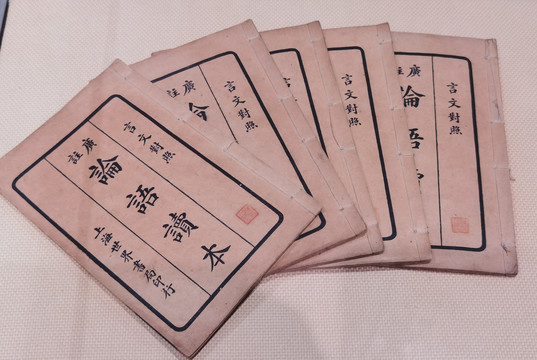 言文對照
廣註
論語讀本
上海世界書局印行
言文對照
廣註
言文對照
言文對照
言文對照
廣註
論語